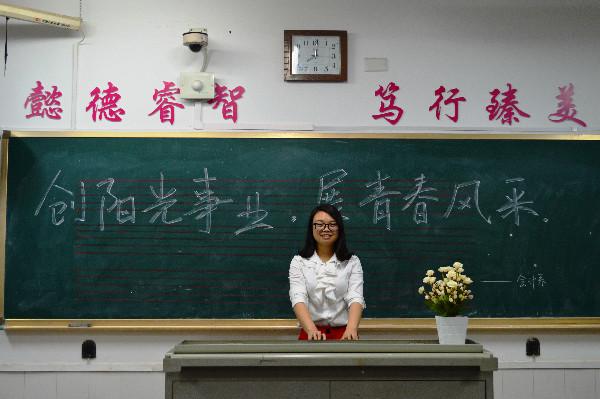 懿德睿智 笃行臻美
创阳光事业，展青春风采。
——会计系